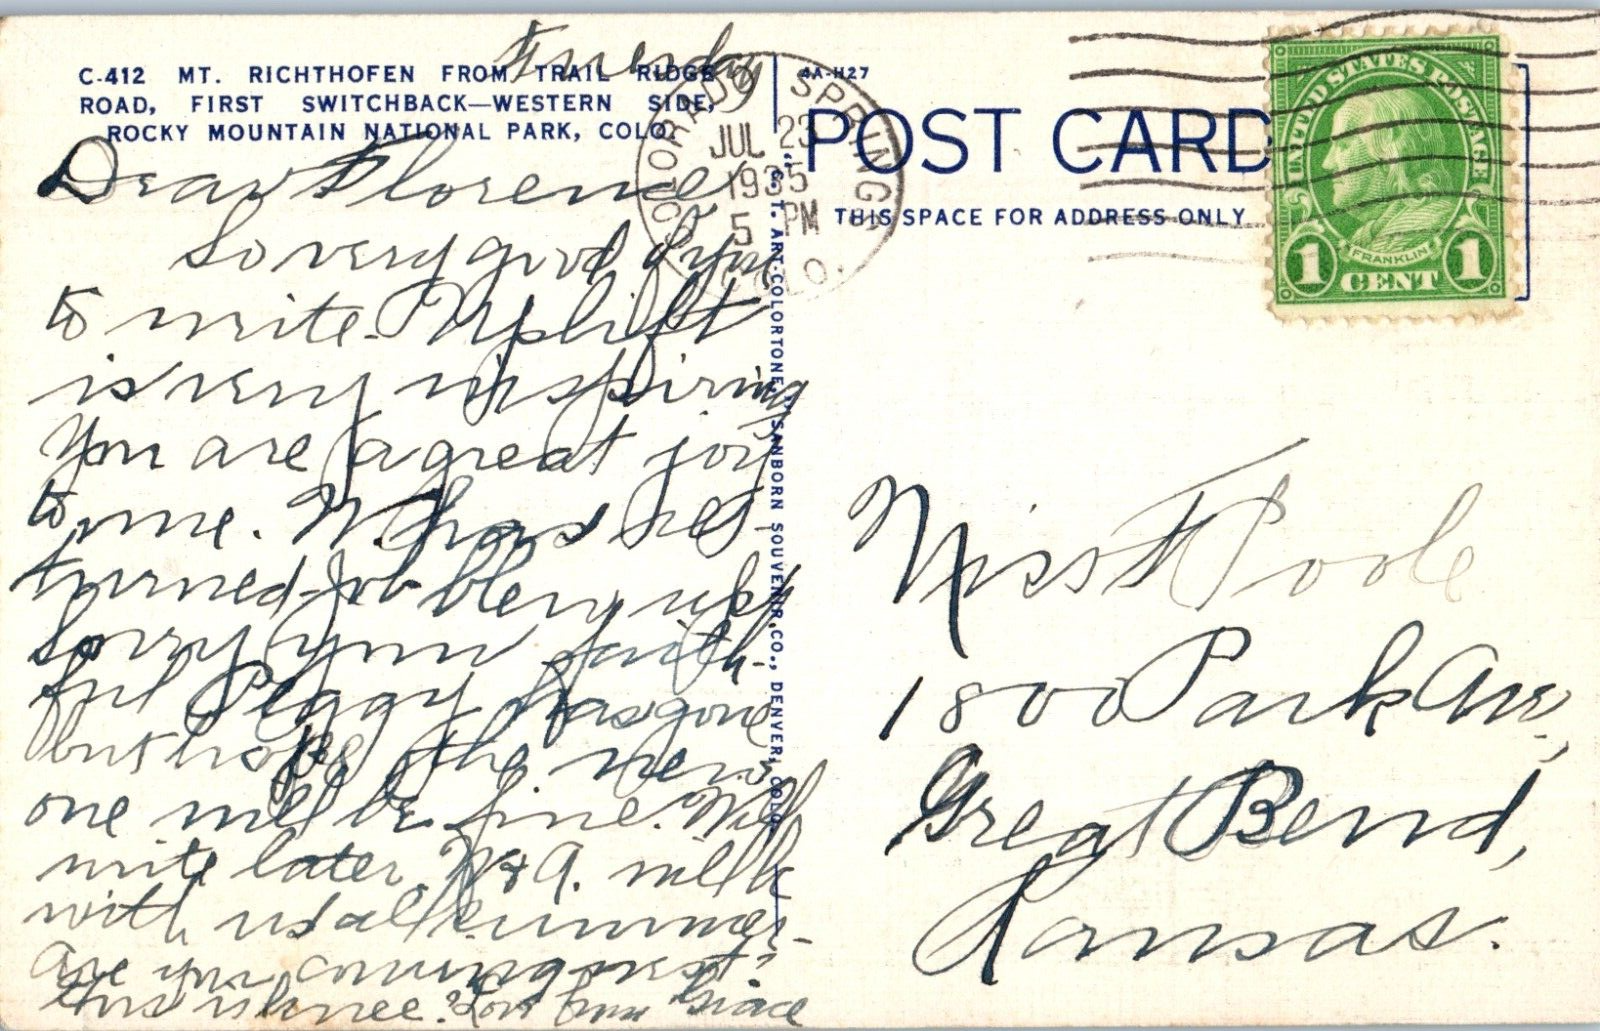 Tuesday
C-412 MT. RICHTHOFEN FROM TRAIL RIDGE
ROAD, FIRST SWITCHBACK—WESTERN SIDE,
ROCKY MOUNTAIN NATIONAL PARK, COLO.
Dear Florence
So very good of you
to write. Uplift
is very inspiring
You are a great joy
to me. W. has re
turned
Sorry your faith-
ful Peggy has gone
but hope the new
one will be fine. Will
write later. W & A. will be
with us all summer-
Are you coming west?
this Love from Grace
COLORADO SPRINGS
JUL 23
1935
5 PM
COLO.
4A-H27
POST CARD
THIS SPACE FOR ADDRESS ONLY
UNITED STATES POSTAGE
FRANKLIN
1 CENT 1
C. T. ART-COLORTONE, SANBORN SOUVENIR CO., DENVER, COLO.
Miss F Poole
1800 Park Ave.,
Great Bend,
Kansas.